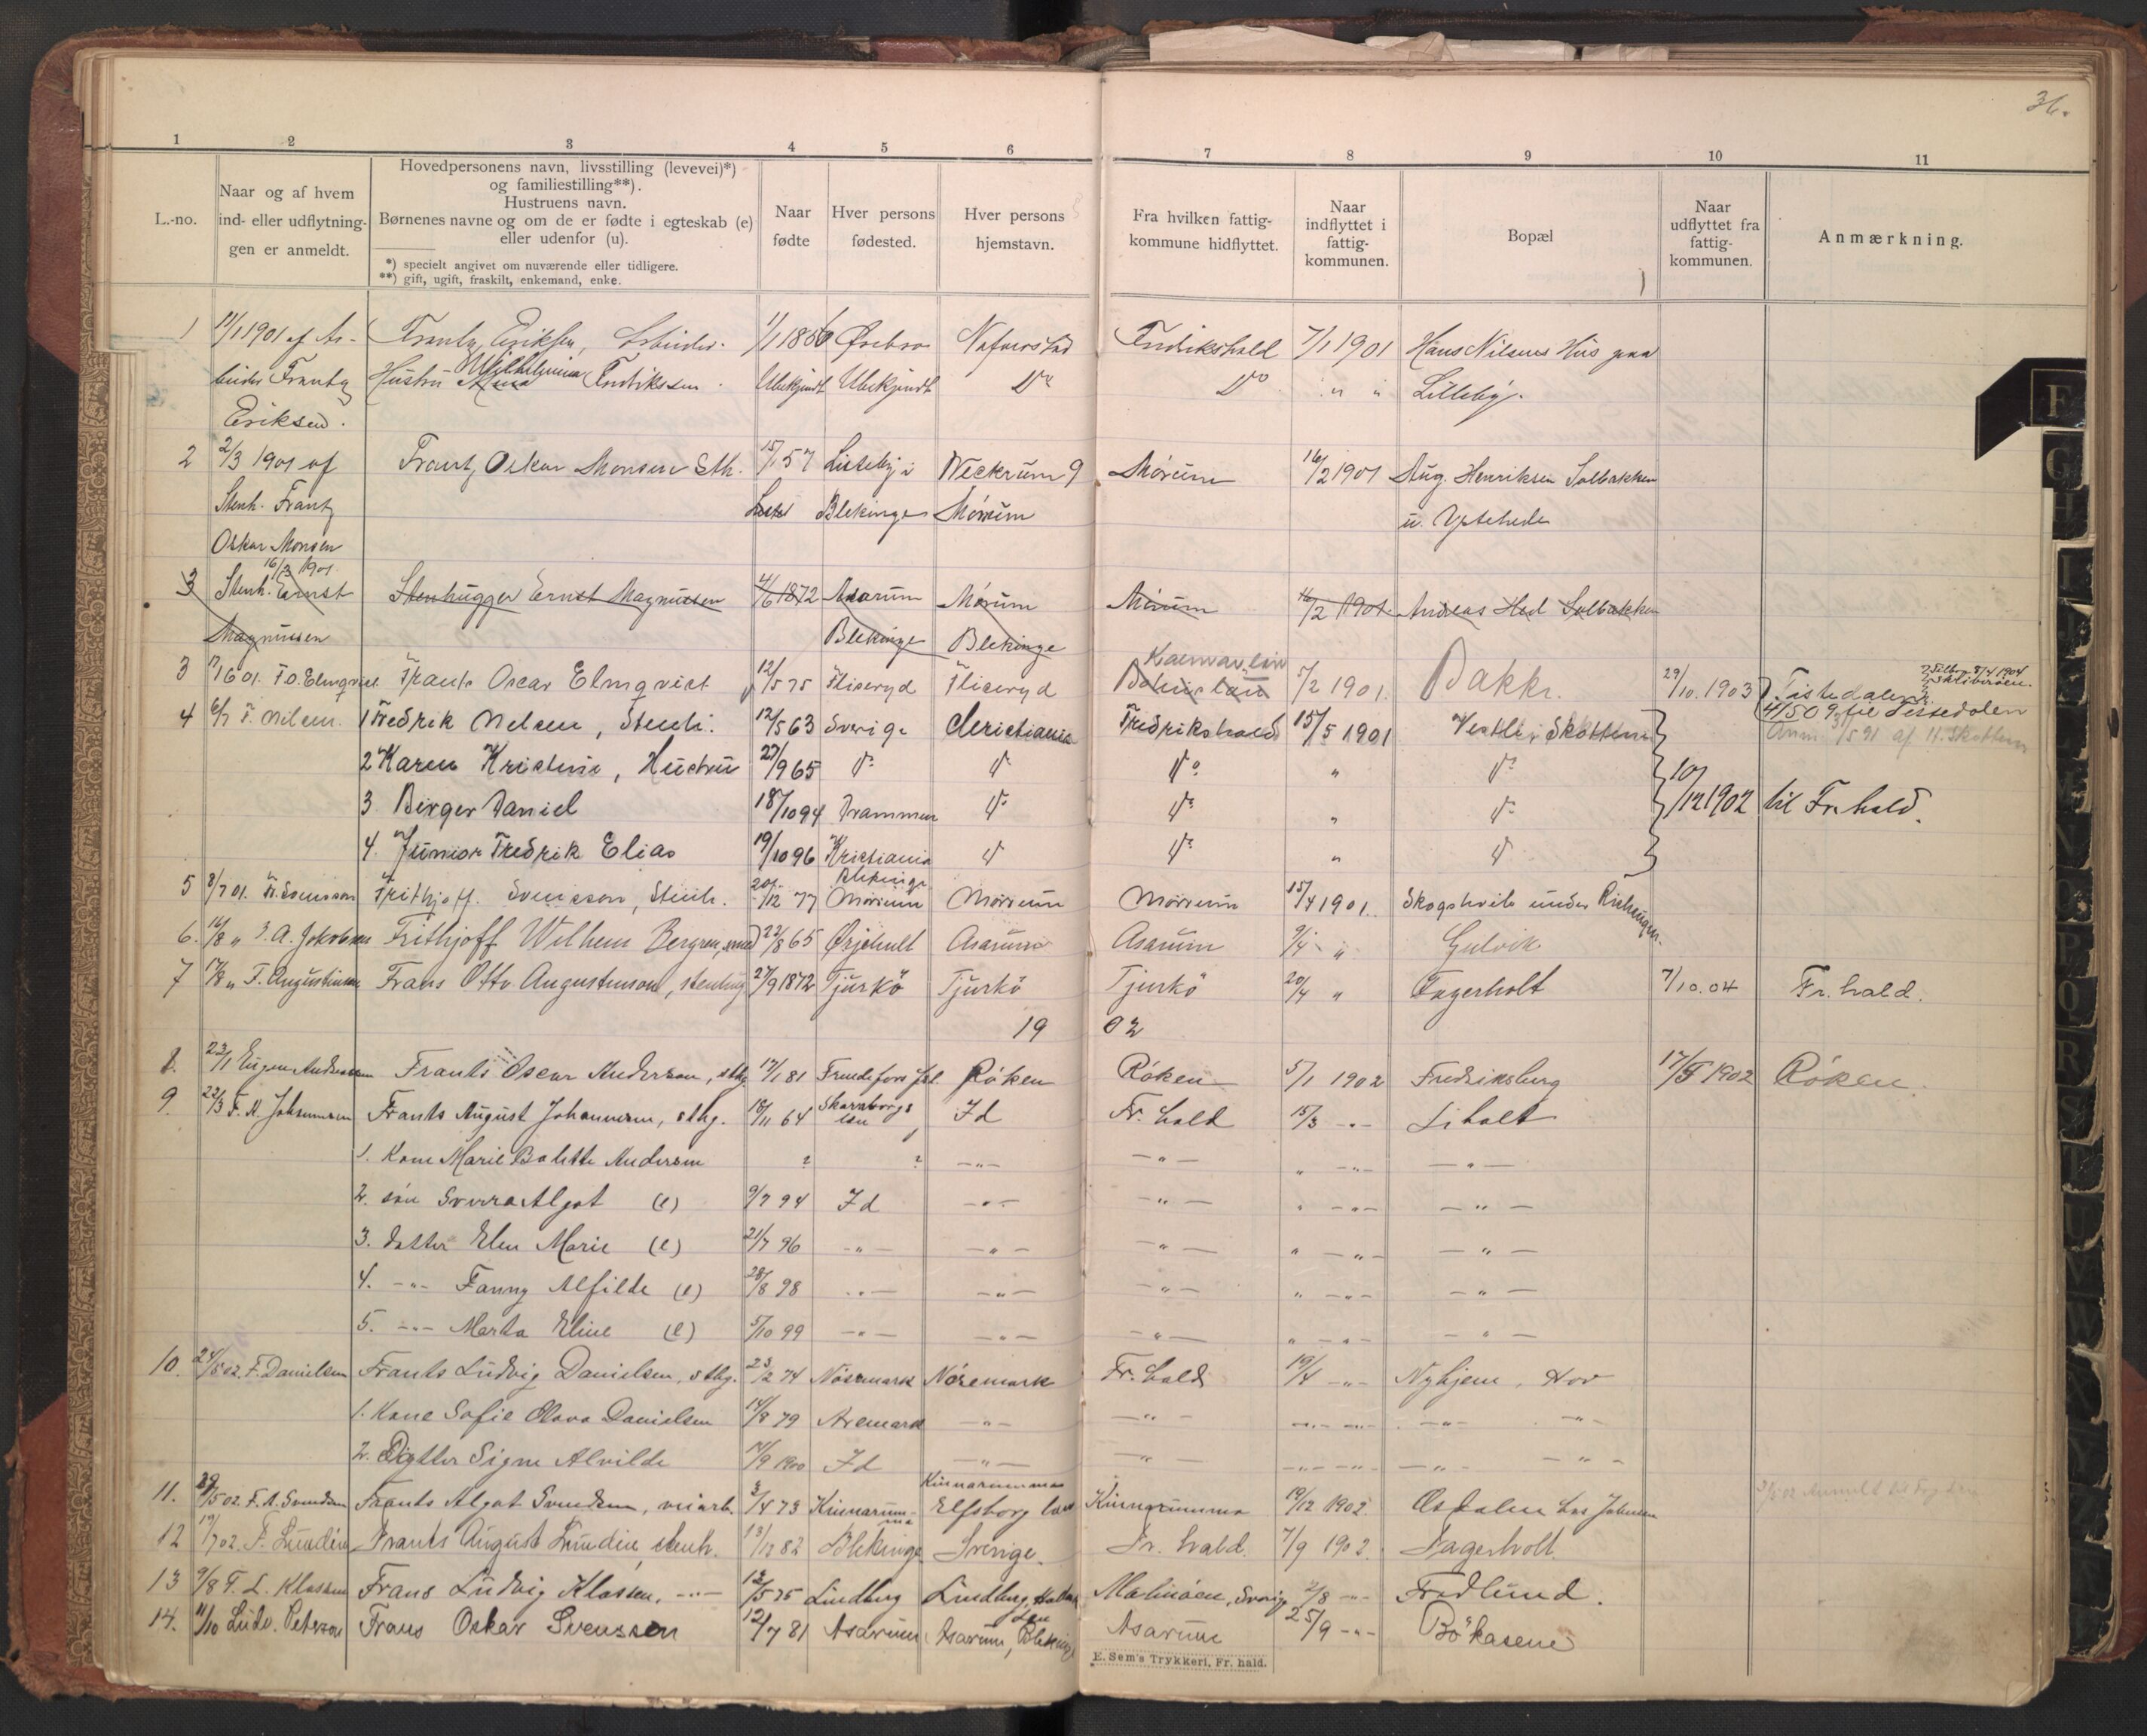 36.
1 2 3 4 5 6 7 8 9 10 11
L.-no.
Naar og af hvem
ind- eller udflytning-
gen er anmeldt.
Hovedpersonens navn, livsstilling (levevei)*)
og familiestilling**).
Hustruens navn.
Børnenes navne og om de er fødte i egteskab (e)
eller udenfor (u).
*) specielt angivet om nuværende eller tidligere.
**) gift, ugift, fraskilt, enkemand, enke.
Naar
fødte
Hver persons
fødested.
Hver persons
hjemstavn.
Fra hvilken fattig-
kommune hidflyttet.
Naar
indflyttet i
fattig-
kommunen.
Bopæl
Naar
udflyttet fra
fattig-
kommunen.
Anmærkning.
1 11/1 1901 af Ar- Frantz Eriksen, Arbeider. 1/1 1856 Ørebro Nafverstad Fredrikshald 7/1 1901 Hans Nilsens Hus paa
beider Frantz Hustru Wilhelmina Fredriksen. Ubekjendt Ubekjendt Do Do " " Lilleby.
Eriksen.
2 2/3 1901 af Frantz Oskar Monsen Sth. 15/1 57 Listeby i Weckrum 9 Mórum 16/2 1901 Aug. Henriksen Solbakken
Stenh. Frantz Blekinge Mórrum u. Ystehede
Oskar Monsen
16/3 1901.
3 Stenh. Ernst Stenhugger Ernst Magnussen 4/6 1872 Asarum Mórum Mórum 16/2 1901. Andreas Hed Solbakken
Magnussen Blekinge Blekinge
Kalmar län
3 7/6 01. F.O. Elmqvist Frants Oscar Elmqvist 12/5 75 Fliseryd Fliseryd Bohuslän 5/2 1901. Bakke. 29/10. 1903 Tistedalen
4 6/7 F. Nilsen. 1 Fredrik Nelsen, Stenh. 12/5 63 Sverige Christiania Fredrikshald 15/5 1901 Vestli i Skottene 4/5 09 til Tistedalen
2 Karen Kristine, Hustru 27/9 65 Do Do Do " Do
3 Birger Daniel 18/10 94 Drammen Do Do " Do 10/12 1902 til Fr.hald.
4. Junior Fredrik Elias 19/10 96 Kristiania Do Do " Do
Blekinge
5 8/7 01. F. Svensson Frithjoff. Svensson, Stenh. 20/12 77 Mórrum Mórrum Mórrum 15/4 1901. Skogshvile under
6. 16/8 " F. A. Jakobsen Frithjoff Wilhem Bergren, 22/8 65 Asarum Asarum 9/4 " Gulvik
7 17/8 " F. Augustinson Frans Otto Augustinson, stenhug 27/9 1872 Tjurkö Tjurkö Tjurkö 20/4 " Fagerholt 7/10.04 Fr. hald.
19 02
8. 23/1 Eugen Anderssen Frants Oscar Anderson, sthg 17/1 81 Róken Róken 5/1 1902 Fredriksberg 17/5 1902 Róken.
9. 22/3 F. A. Johannesen Frants August Johannesen, sthg. 15/11 64 Skaraborgs län Id Fr. hald 15/3 -"- Liholt
1. Kone Marie Bolette Andersen ? ? -"- -"- " -"- -"-
2. søn Sverre Algot (e) 9/7 94 Id -"- -"- " -"- -"-
3. datter Elen Marie (e) 21/7 96 -"- -"- -"- " -"- -"-
4. -"- Fanny Alfilde (e) 28/8 98 -"- -"- -"- " -"- -"-
5. -"- Marta Eline (e) 5/10 99 -"- -"- -"- " -"- -"-
10. 24/5 02. F. Danielsen Frants Ludvig Danielsen, sthg. 23/2 74 Nósemark Nósemark Fr. hald 19/4 -"- Nyhjem, Hov
1. Kone Sofie Olava Danielsen 14/8 79 Aremark -"- -"- -"- -"- -"- -"-
2. Datter Signe Alvilde 14/9 1900 Id -"- -"- -"- -"- -"- -"-
Kinnarumma
11. 28/5 02. F. A. Svendsen Frants Algot Svendsen, veiarb. 3/4 73 Kinnarumma Elfsborg län Kinnarumma 19/12 1902. Øsdalen hos Johnsen
12 19/7 02. F. Lundin Frants August Lundin, stenh. 13/12 82 Blekinge Sverige. Fr. hald. 7/9 1902. Fagerholt.
13 9/8 F. L. Klassen Frans Ludvig Klassen. -"- 12/5 75 Lindberg Lindberg, Hallands Län Malmøen, Sverige 2/8 -"- Fredlund.
14. 11/10 Ludv. Peterson Frans Oskar Svensson 12/7 81 Asarum Asarum, Blekinge Asarum 25/9 -"- Bökasene
E. Sem's Trykkeri, Fr. hald.
F
G
H
O
P
Q
R
S
T
U